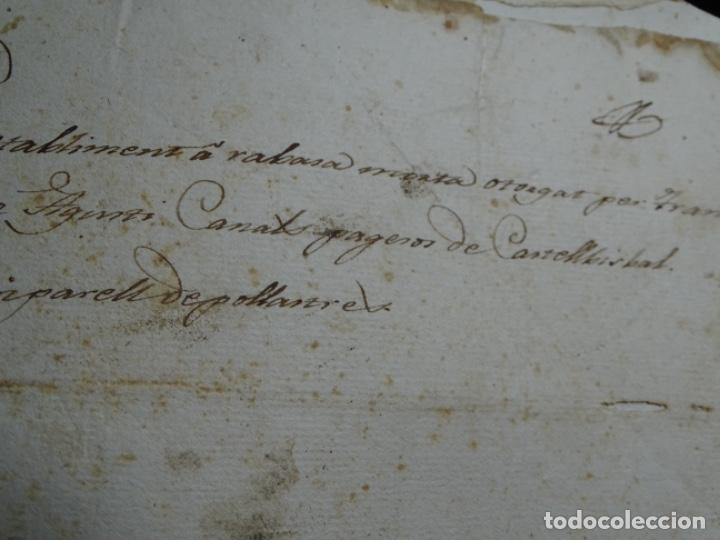 stabliment â rabasa morta otorgat per Fran
e Agusti Canals pageros de Castellbisbal.
i parell de pollastres.
todocoleccion